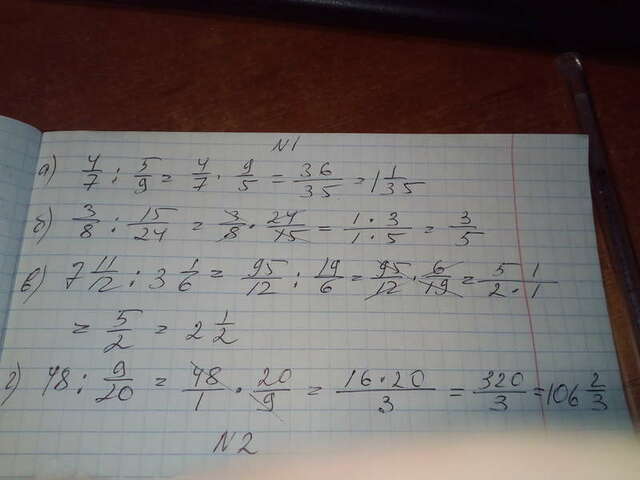 N1
а) 4/7 : 5/9 = 4/7 · 9/5 = 36/35 = 1 1/35
б) 3/8 : 15/24 = 3/8 · 24/15 = 1·3/1·5 = 3/5
в) 7 11/12 : 3 1/6 = 95/12 : 19/6 = 95/12 · 6/19 = 5·1/2·1
= 5/2 = 2 1/2
г) 48 : 9/20 = 48/1 · 20/9 = 16·20/3 = 320/3 = 106 2/3
N2